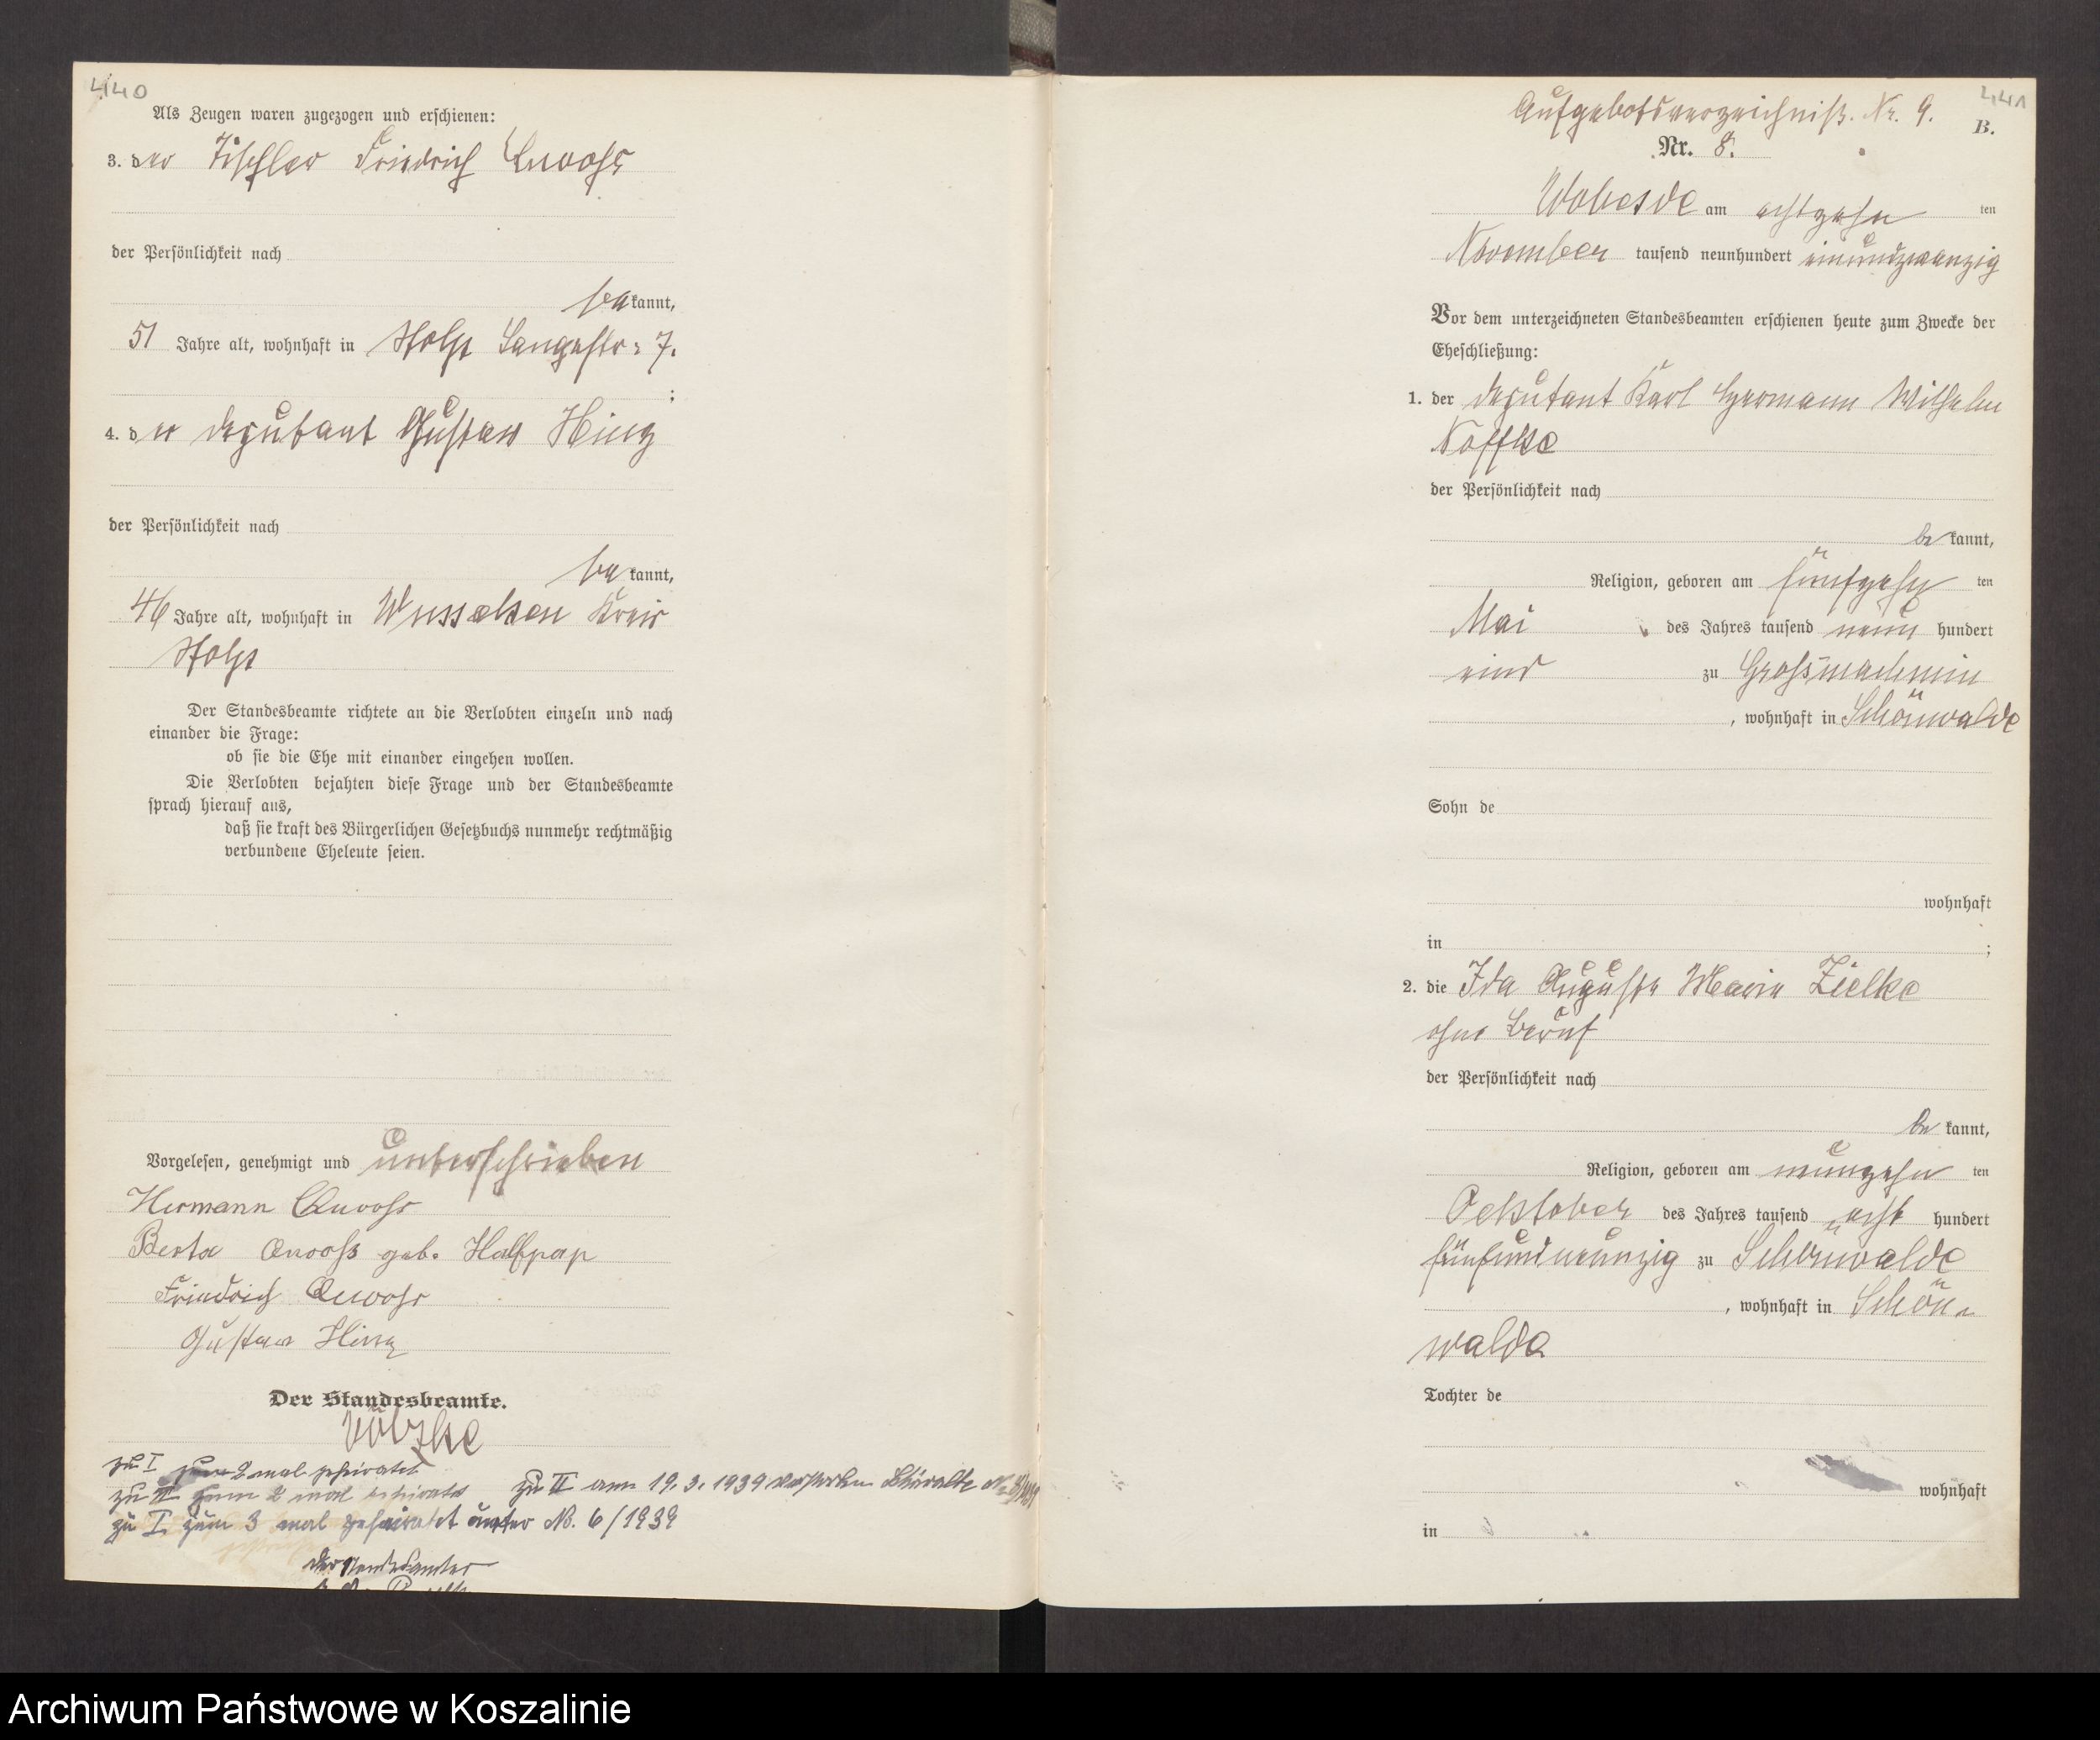 440
Als Zeugen waren zugezogen und erschienen:
3. der Tischler Friedrich
der Persönlichkeit nach
bekannt,
51 Jahre alt, wohnhaft in Stolp Langestr: 7.
;
4. der Deputant Gustav Hinz
der Persönlichkeit nach
bekannt,
46 Jahre alt, wohnhaft in Wusseken Kreis
Stolp
Der Standesbeamte richtete an die Verlobten einzeln und nach
einander die Frage:
ob sie die Ehe mit einander eingehen wollen.
Die Verlobten bejahten diese Frage und der Standesbeamte
sprach hierauf aus,
daß sie kraft des Bürgerlichen Gesetzbuchs nunmehr rechtmäßig
verbundene Eheleute seien.
Vorgelesen, genehmigt und unterschrieben
Hermann
Berta geb. Halfpap
Friedrich
Gustav Hinz
Der Standesbeamte.
zu I zum 2 mal geheiratet
zu II zum 2 mal geheiratet zu II am 19.3.1939 verstorben
zu I. zum 3 mal geheiratet unter No. 6/1939
Der Standesbeamte
441
Aufgebotsverzeichniß. Nr. 9.
B.
Nr. 8.
Wobesde am achtzehnten
November tausend neunhundert einundzwanzig
Vor dem unterzeichneten Standesbeamten erschienen heute zum Zwecke der
Eheschließung:
1. der Deputant Karl Hermann Wilhelm
Noffke
der Persönlichkeit nach
bekannt,
Religion, geboren am fünfzehnten
Mai des Jahres tausend neunhundert
eins zu Großmachmin
, wohnhaft in Schönwalde
Sohn de
wohnhaft
in ;
2. die Ida Auguste Marie Zielke
ohne Beruf
der Persönlichkeit nach
bekannt,
Religion, geboren am neunzehnten
Oektober des Jahres tausend achthundert
fünfundneunzig zu Schönwalde
, wohnhaft in Schön-
walde
Tochter de
wohnhaft
in
Archiwum Państwowe w Koszalinie